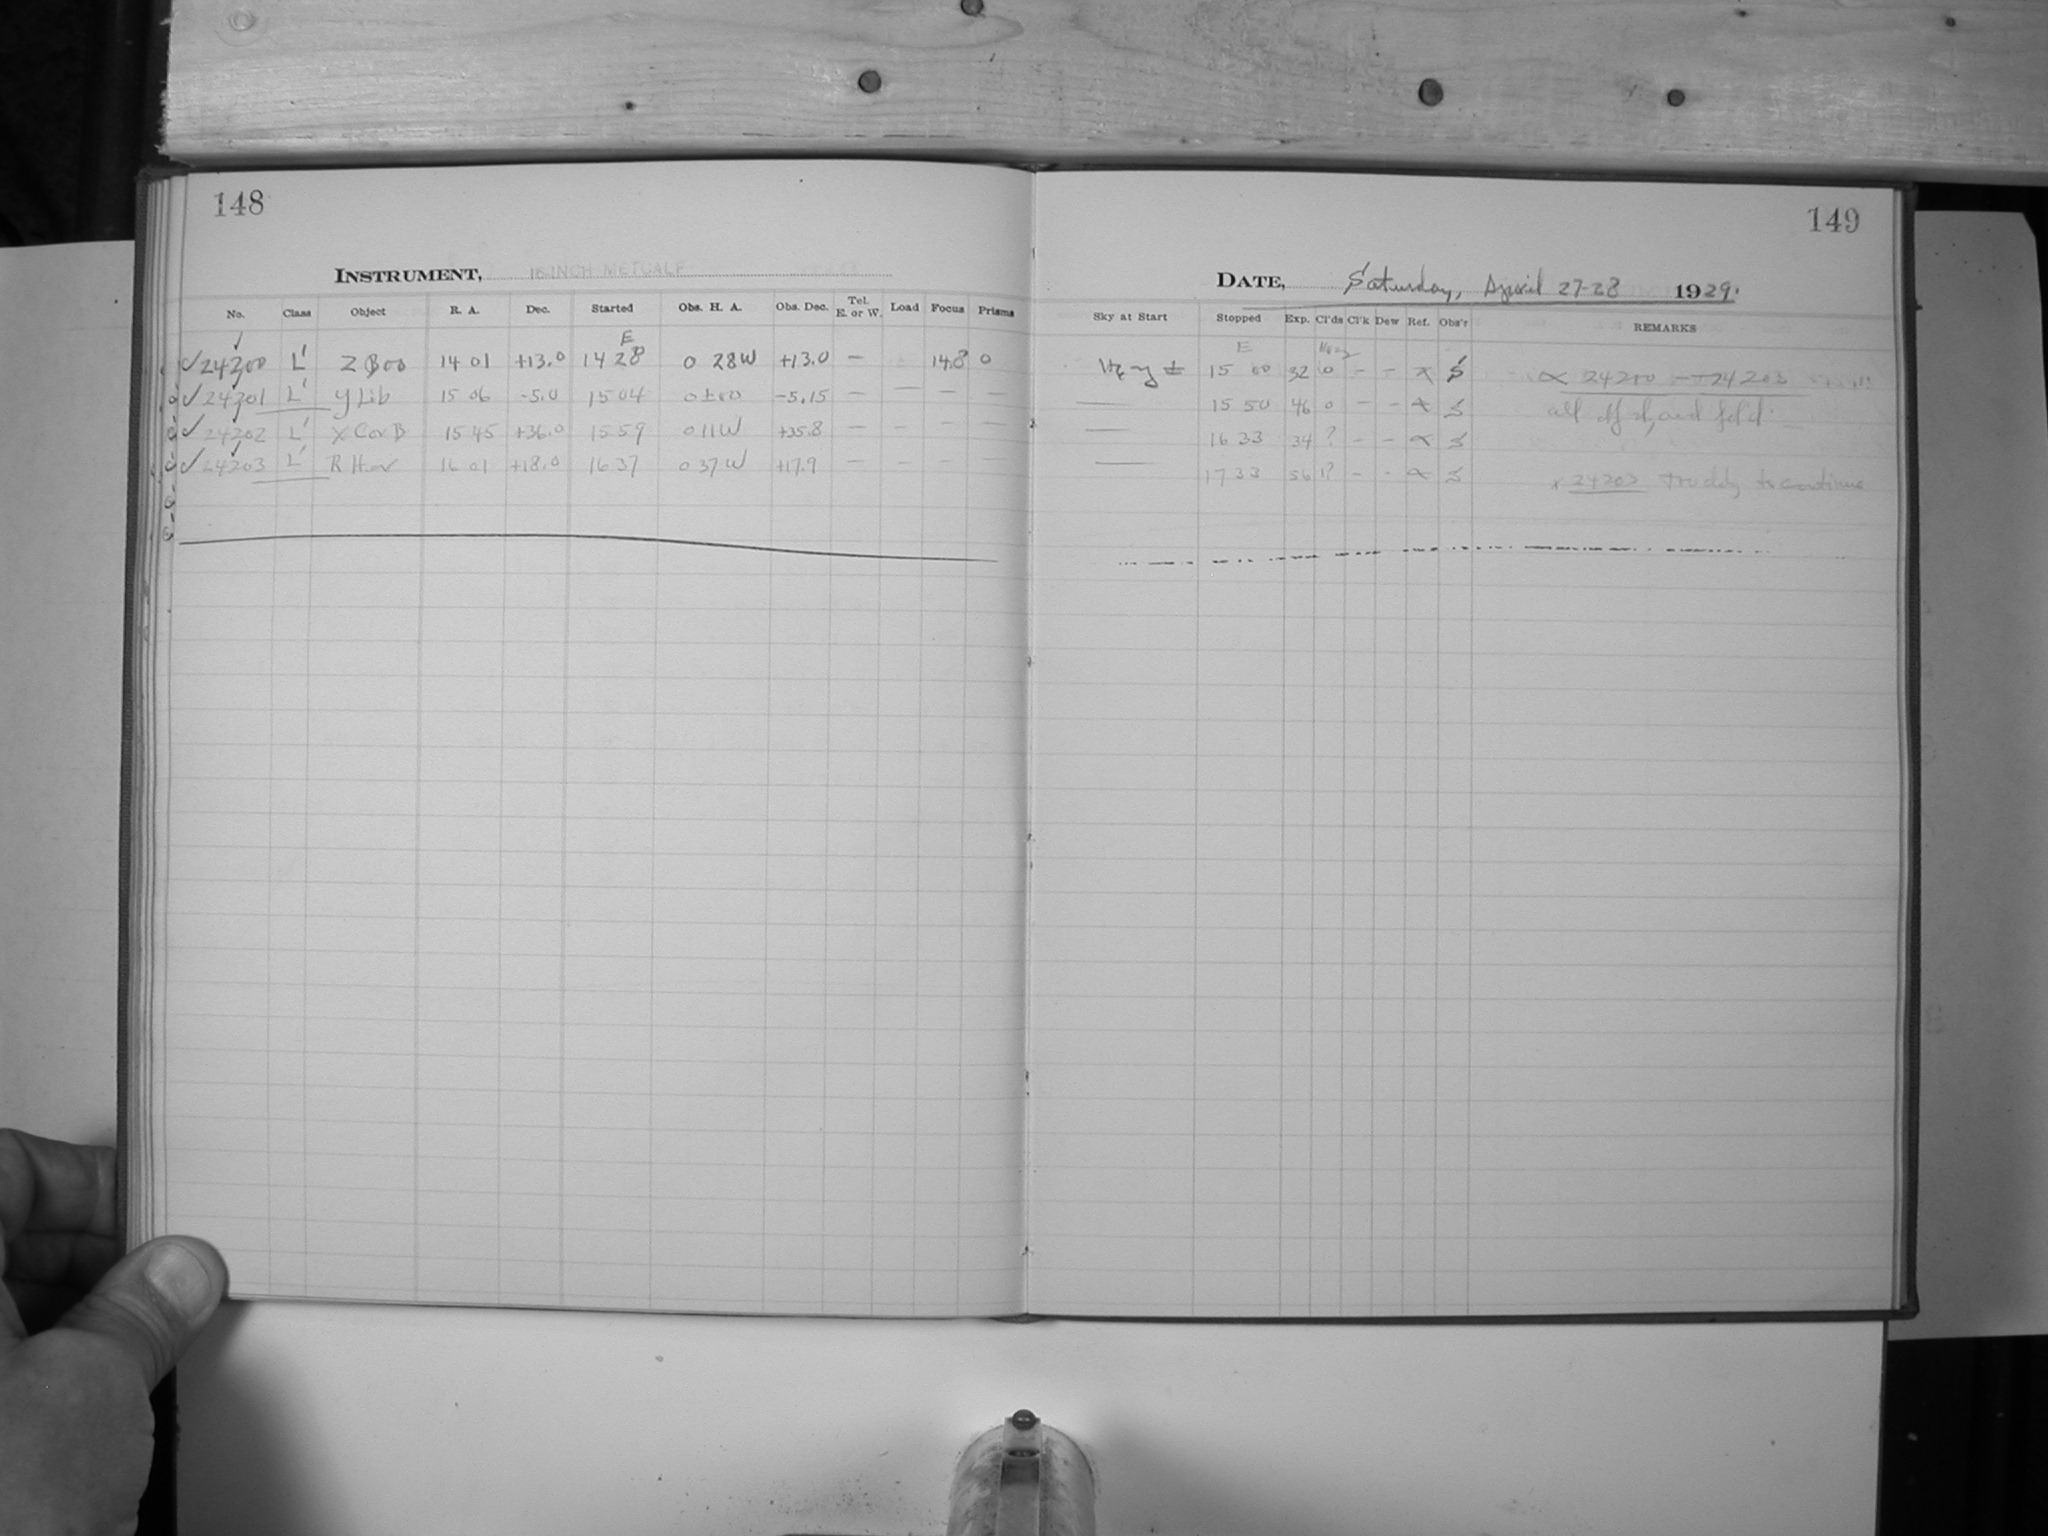 148
INSTRUMENT, 16-INCH METCALF
No. Class Object R. A. Dec. Started Obs. H. A. Obs. Dec. Tel. E. or W. Load Focus Prisms
E
✓24200 L' Z Boo 14 01 +13.0 14 28 0 28W +13.0 — 14.8 0
✓24201 L' Y Lib 15 06 -5.0 15 04 0±00 -5.15 — — — —
✓24202 L' X Cor B 15 45 +36.0 15 59 0 11W +35.8 — — — —
✓24203 L' R Her 16 01 +18.0 16 37 0 37W +17.9 — — — —
149
DATE, Saturday, April 27-28 1929.
Sky at Start Stopped Exp. Cl'ds Cl'k Dew Ref. Obs'r REMARKS
E Hazy
Hazy ± 15 00 32 0 - - x S x 24200 — 24203
— 15 50 46 0 - - x S all
— 16 33 34 ? - - x S
— 17 33 56 1? - - x S x 24203 to continue